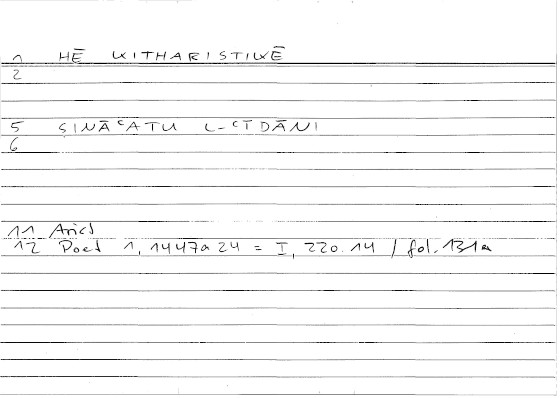 1 HĒ KITHARISTIKĒ
2
5 ṢINĀʿATU L-ʿĪDĀNI
6
11 Arist
12 Poet 1, 1447a24 = I, 220.14 / fol. 131a